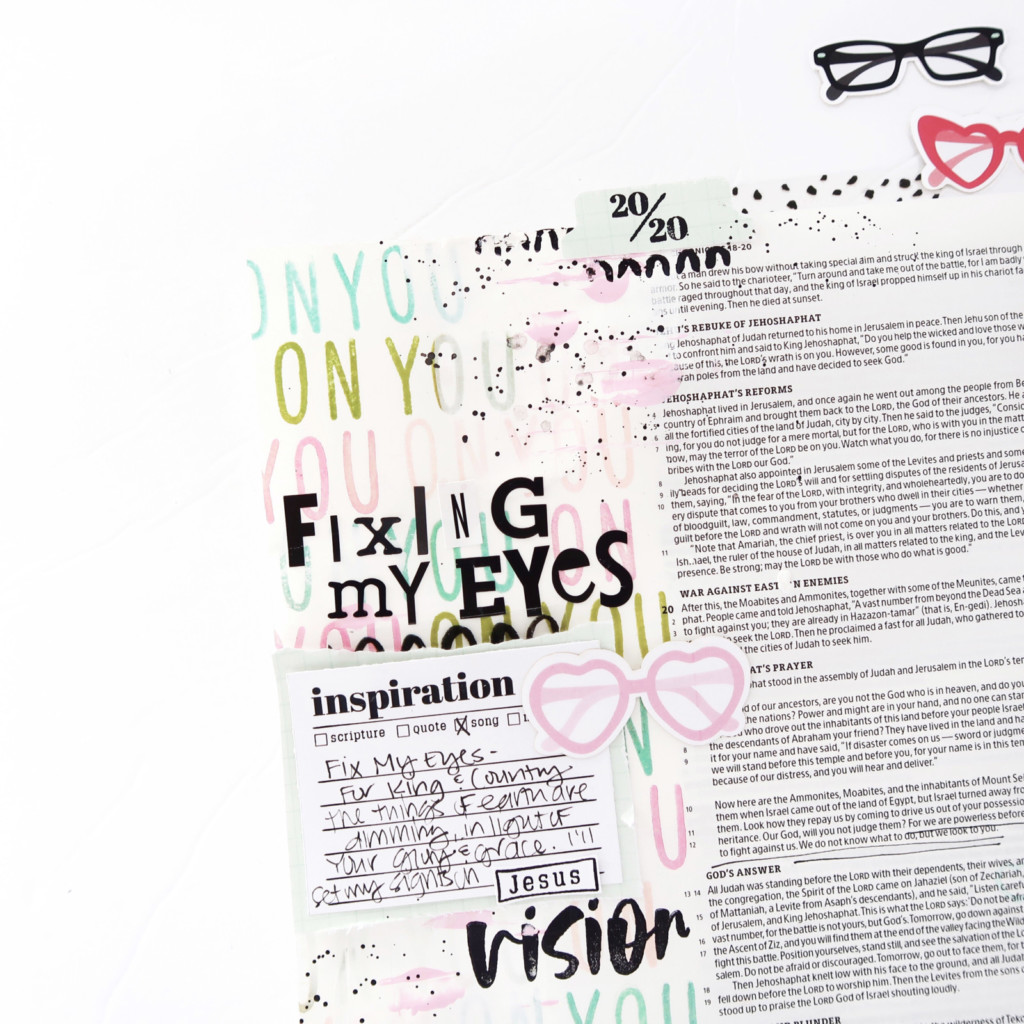 20/20
ON YOU
ON YOU
YOU ON YOU
YOU ON
FIXING
MY EYES
inspiration
scripture quote song
Fix My Eyes-
For King & Country
the things of earth are
dimming in light of
Your glory & grace. I'll
set my sights on
Jesus
vision
YOU
18-20
a man drew his bow without taking special aim and struck the king of Israel through
armor. So he said to the charioteer, "Turn around and take me out of the battle, for I am badly
battle raged throughout that day, and the king of Israel propped himself up in his chariot fa
until evening. Then he died at sunset.
REBUKE OF JEHOSHAPHAT
Jehoshaphat of Judah returned to his home in Jerusalem in peace. Then Jehu son of the
to confront him and said to King Jehoshaphat, "Do you help the wicked and love those w
of this, the LORD's wrath is on you. However, some good is found in you, for you ha
poles from the land and have decided to seek God."
JEHOSHAPHAT'S REFORMS
4 Jehoshaphat lived in Jerusalem, and once again he went out among the people from Be
country of Ephraim and brought them back to the LORD, the God of their ancestors. He a
5 all the fortified cities of the land of Judah, city by city. Then he said to the judges, "Consid
6 ing, for you do not judge for a mere mortal, but for the LORD, who is with you in the matt
7 now, may the terror of the LORD be on you. Watch what you do, for there is no injustice o
bribes with the LORD our God."
8 Jehoshaphat also appointed in Jerusalem some of the Levites and priests and some
ily heads for deciding the LORD's will and for settling disputes of the residents of Jerusa
9 them, saying, "In the fear of the LORD, with integrity, and wholeheartedly, you are to do
10 ery dispute that comes to you from your brothers who dwell in their cities — whether
of bloodguilt, law, commandment, statutes, or judgments — you are to warn them,
guilt before the LORD and wrath will not come on you and your brothers. Do this, and y
11 "Note that Amariah, the chief priest, is over you in all matters related to the LORD
Ishmael, the ruler of the house of Judah, in all matters related to the king, and the Lev
presence. Be strong; may the LORD be with those who do what is good."
WAR AGAINST EASTERN ENEMIES
20 After this, the Moabites and Ammonites, together with some of the Meunites, came f
2 phat. People came and told Jehoshaphat, "A vast number from beyond the Dead Sea a
3 to fight against you; they are already in Hazazon-tamar" (that is, En-gedi). Jehosh
seek the LORD. Then he proclaimed a fast for all Judah, who gathered to
the cities of Judah to seek him.
PRAYER
stood in the assembly of Judah and Jerusalem in the LORD's tem
of our ancestors, are you not the God who is in heaven, and do you
the nations? Power and might are in your hand, and no one can stan
who drove out the inhabitants of this land before your people Israel
the descendants of Abraham your friend? They have lived in the land and ha
it for your name and have said, "If disaster comes on us — sword or judgme
9 we will stand before this temple and before you, for your name is in this tem
because of our distress, and you will hear and deliver."
10 Now here are the Ammonites, Moabites, and the inhabitants of Mount Sei
them when Israel came out of the land of Egypt, but Israel turned away fro
11 them. Look how they repay us by coming to drive us out of your possession
12 heritance. Our God, will you not judge them? For we are powerless before
to fight against us. We do not know what to do, but we look to you.
GOD'S ANSWER
13 14 All Judah was standing before the LORD with their dependents, their wives, an
the congregation, the Spirit of the LORD came on Jahaziel (son of Zechariah,
15 of Mattaniah, a Levite from Asaph's descendants), and he said, "Listen carefu
of Jerusalem, and King Jehoshaphat. This is what the LORD says: 'Do not be afra
16 vast number, for the battle is not yours, but God's. Tomorrow, go down against
17 the Ascent of Ziz, and you will find them at the end of the valley facing the Wild
fight this battle. Position yourselves, stand still, and see the salvation of the Lo
salem. Do not be afraid or discouraged. Tomorrow, go out to face them, for t
18 Then Jehoshaphat knelt low with his face to the ground, and all Judah
19 fell down before the LORD to worship him. Then the Levites from the sons o
stood up to praise the LORD God of Israel shouting loudly.
PLUNDER
the wilderness of Teko